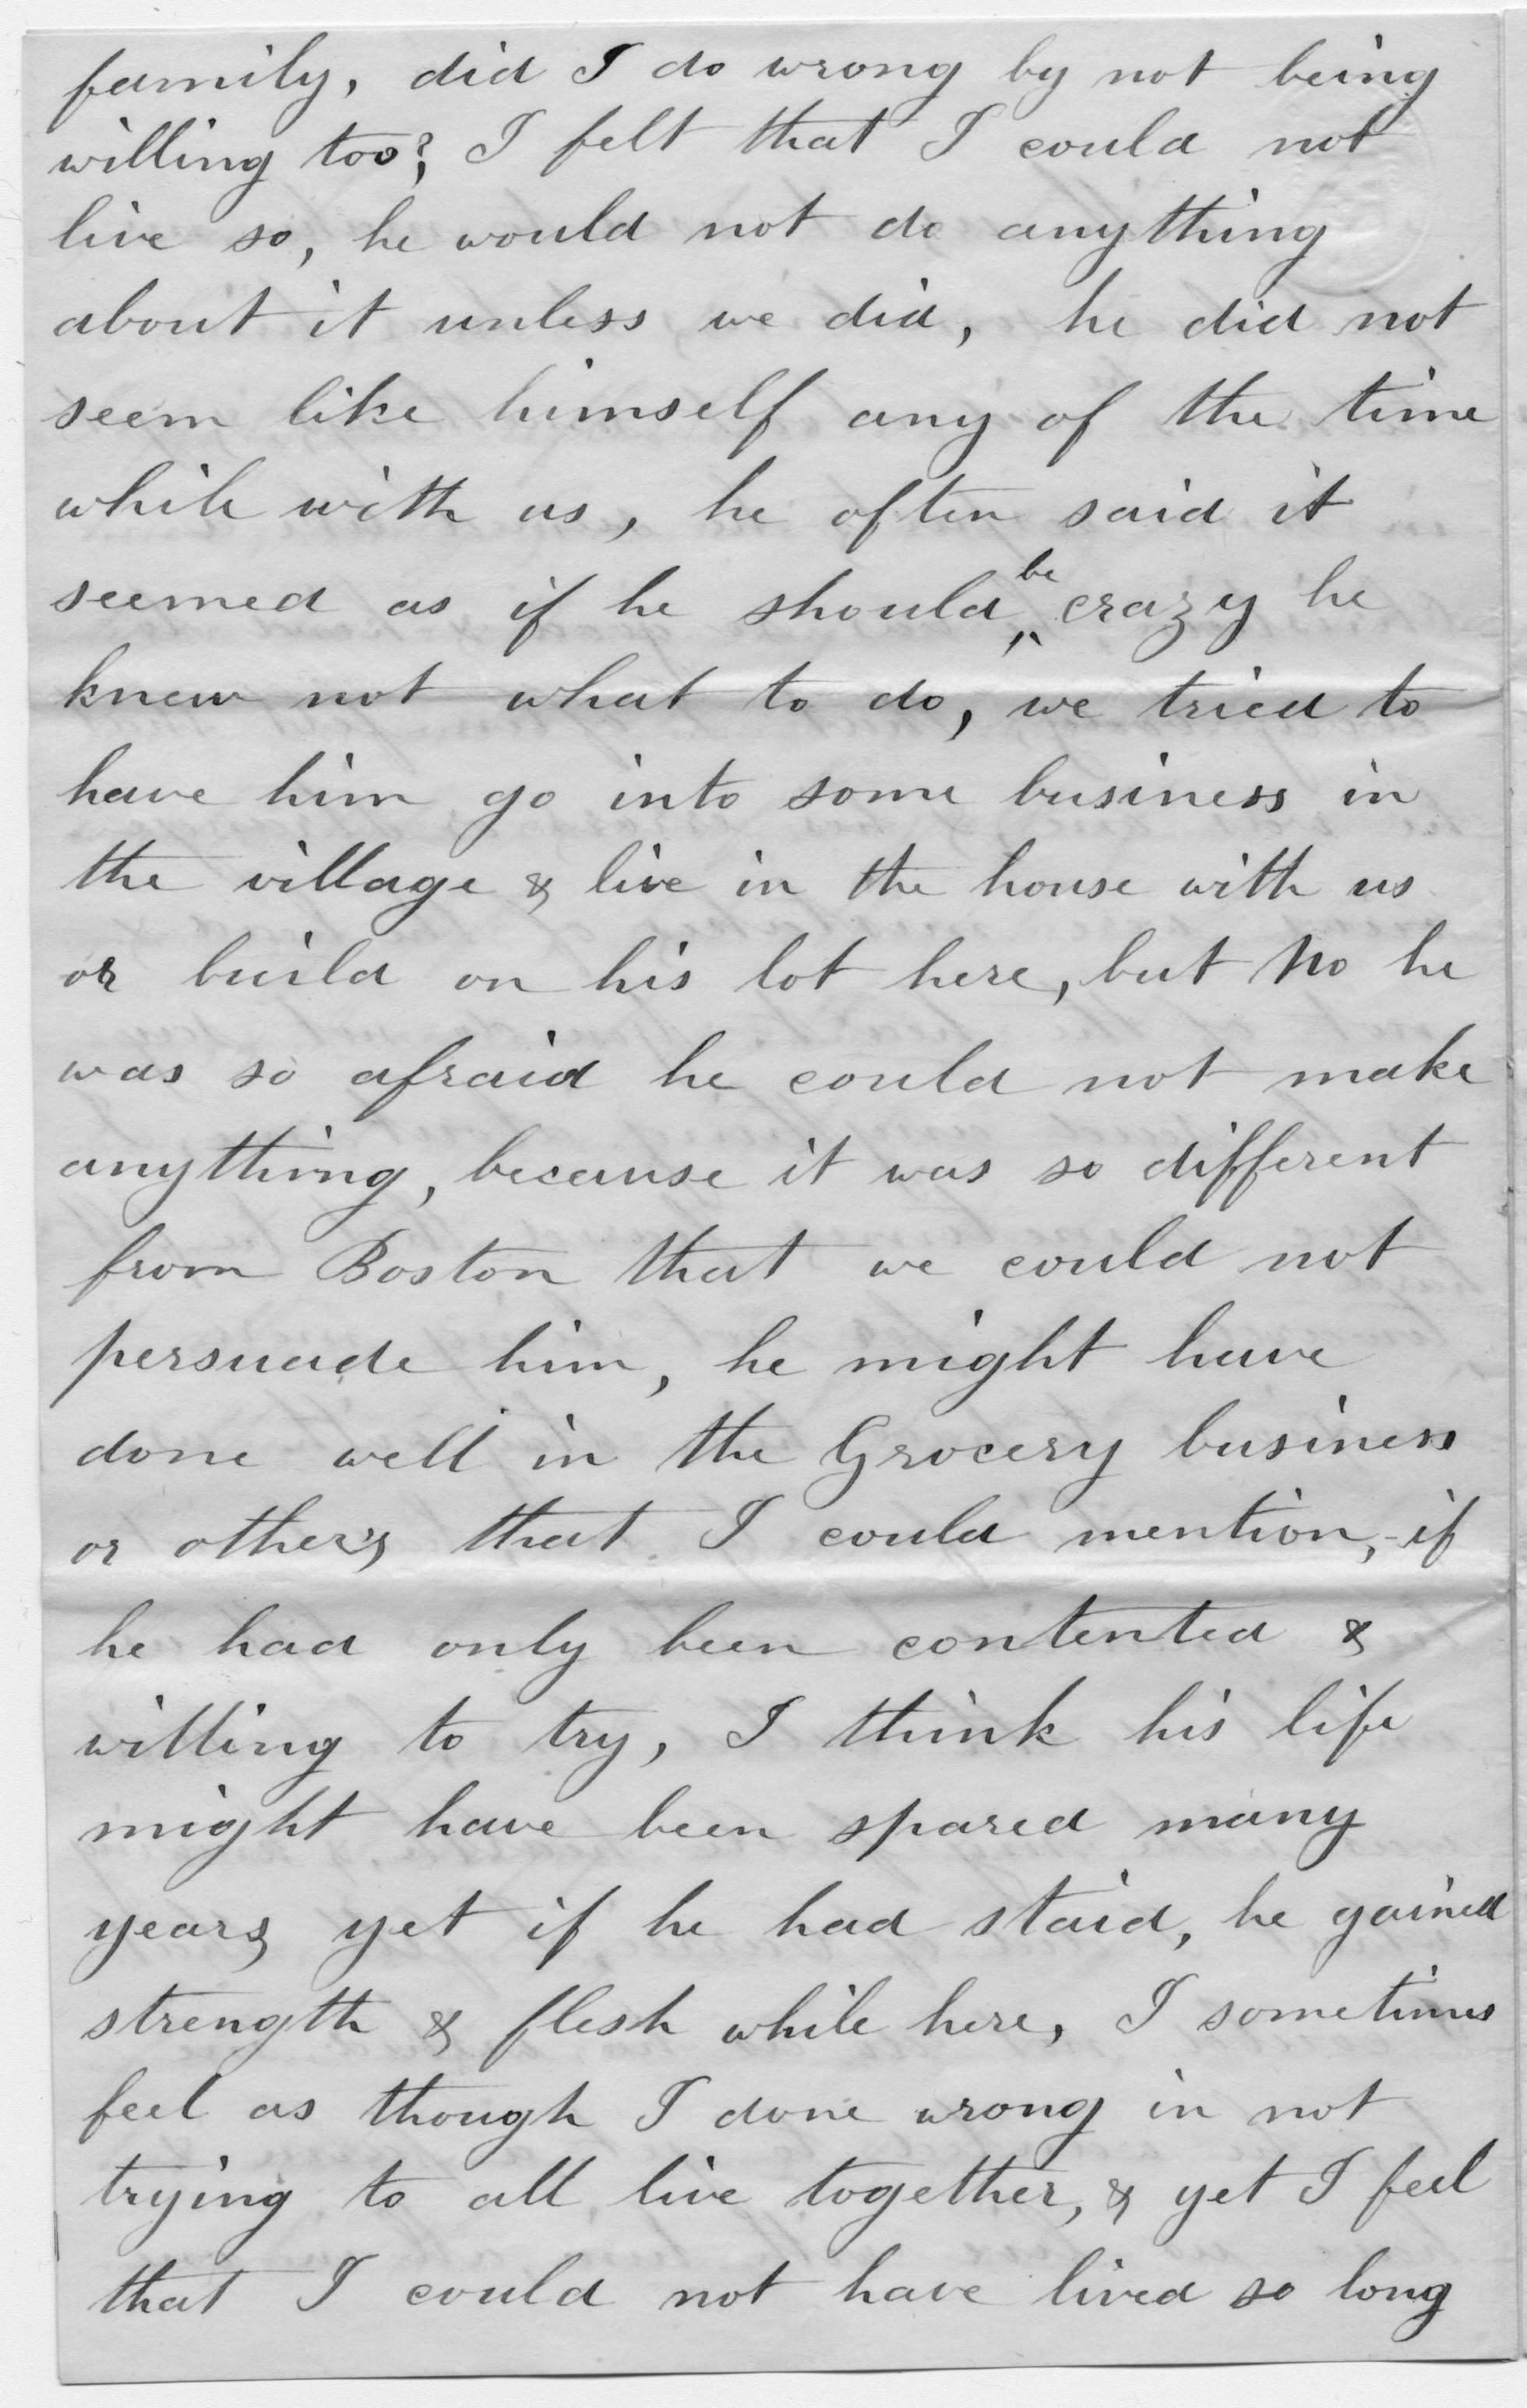 family, did I do wrong by not being
willing too?, I felt that I could not
live so, he would not do anything
about it unless we did, he did not
seem like himself any of the time
while with us, he often said it
seemed as if he should be crazy he
knew not what to do, we tried to
have him go into some business in
the village & live in the house with us
or build on his lot here, but No he
was so afraid he could not make
anything, because it was so different
from Boston that we could not
persuade him, he might have
done well in the Grocery business
or others that I could mention, if
he had only been contented &
willing to try, I think his life
might have been spared many
years yet if he had staid, he gained
strength & flesh while here, I sometimes
feel as though I done wrong in not
trying to all live together, & yet I feel
that I could not have lived so long